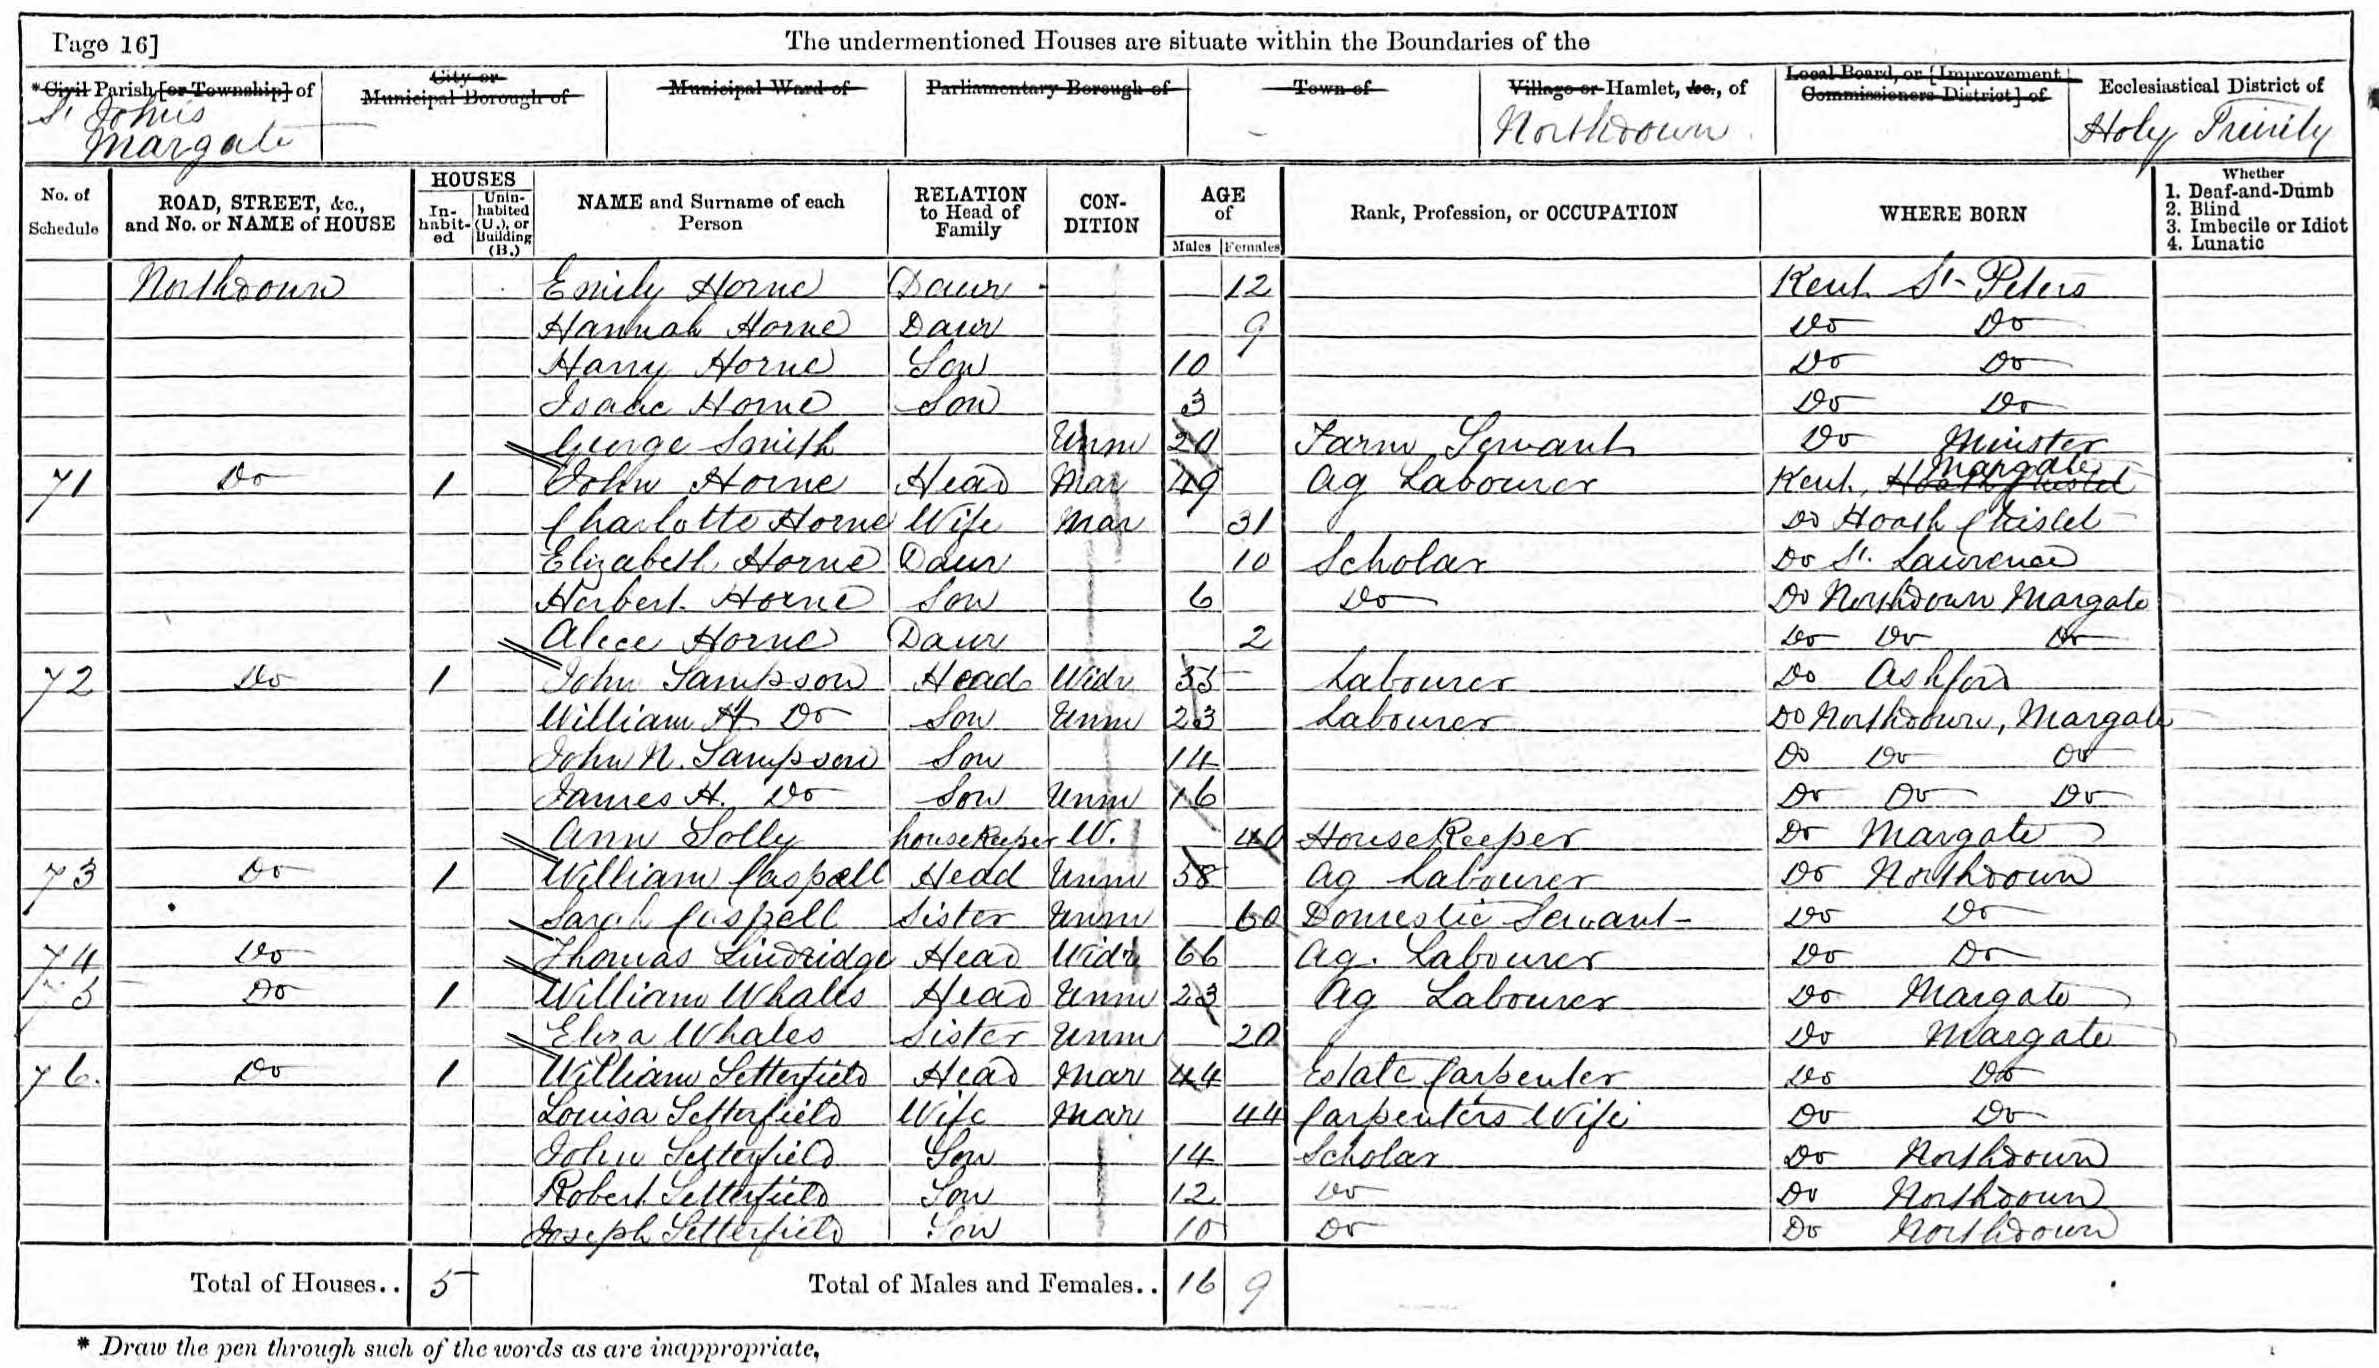 Page 16]
The undermentioned Houses are situate within the Boundaries of the
*Civil Parish [or Township] of
City or Municipal Borough of
Municipal Ward of
Parliamentary Borough of
Town of
Village or Hamlet, &c., of
Local Board, or [Improvement Commissioners District] of
Ecclesiastical District of
St Johns
Margate
Northdown
Holy Trinity
No. of Schedule
ROAD, STREET, &c., and No. or NAME of HOUSE
HOUSES
In-habit-ed
Unin-habited (U.), or Building (B.)
NAME and Surname of each Person
RELATION to Head of Family
CON-DITION
AGE of
Males
Females
Rank, Profession, or OCCUPATION
WHERE BORN
Whether
1. Deaf-and-Dumb
2. Blind
3. Imbecile or Idiot
4. Lunatic
Northdown Emily Horne Daur 12 Kent St Peters
Hannah Horne Daur 9 Do Do
Harry Horne Son 10 Do Do
Isaac Horne Son 3 Do Do
George Smith Unm 20 Farm Servant Do Minster
71 Do 1 John Horne Head Mar 49 Ag Labourer Kent, Hoath Chislet Margate
Charlotte Horne Wife Mar 31 Do Hoath Chislet
Elizabeth Horne Daur 10 Scholar Do St. Lawrence
Herbert Horne Son 6 Do Do Northdown Margate
Alice Horne Daur 2 Do Do Do
72 Do 1 John Sampson Head Widr Labourer Do Ashford
William H Do Son Unm 23 Labourer Do Northdown, Margate
John N. Sampson Son 14 Do Do Do
James H. Do Son Unm 16 Do Do Do
Ann Solly housekeeper W. 40 HouseKeeper Do Margate
73 Do 1 William Caspell Head Unm 58 Ag Labourer Do Northdown
Sarah Caspell Sister Unm 60 Domestic Servant Do Do
74 Do Thomas Lindridge Head Widr 66 Ag. Labourer Do Do
75 Do 1 William Whales Head Unm 23 Ag Labourer Do Margate
Eliza Whales Sister Unm 20 Do Margate
76. Do 1 William Setterfield Head Mar 44 Estate Carpenter Do Do
Louisa Setterfield Wife Mar 44 Carpenters Wife Do Do
John Setterfield Son 14 Scholar Do Northdown
Robert Setterfield Son 12 Do Do Northdown
Joseph Setterfield Son 10 Do Do Northdown
Total of Houses.. 5 Total of Males and Females.. 16 9
* Draw the pen through such of the words as are inappropriate,